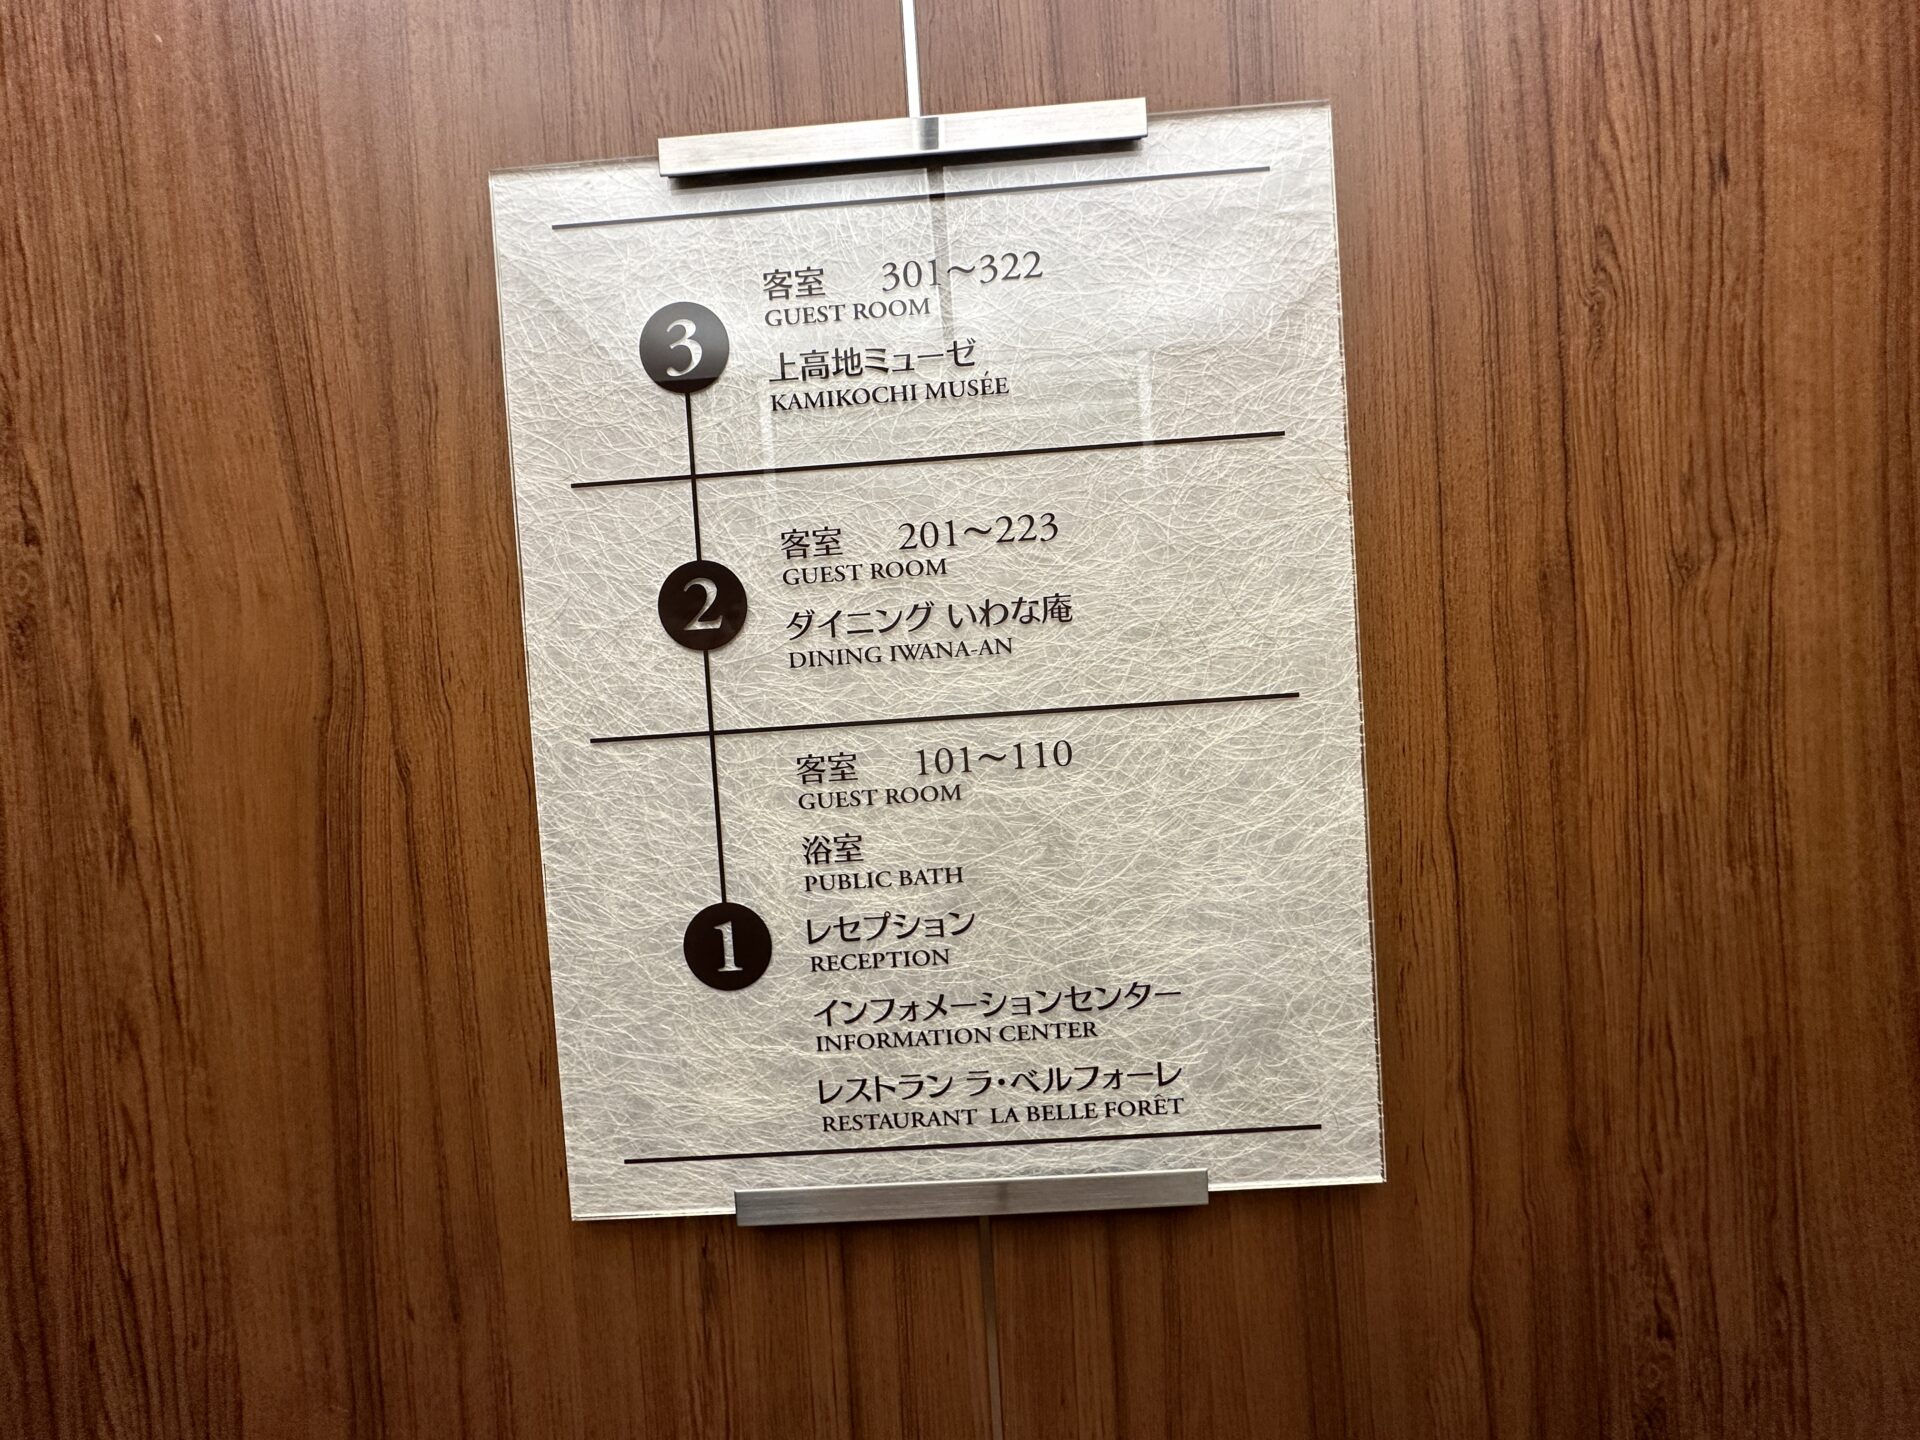 3
客室 301〜322
GUEST ROOM
上高地ミューゼ
KAMIKOCHI MUSÉE
2
客室 201〜223
GUEST ROOM
ダイニング いわな庵
DINING IWANA-AN
1
客室 101〜110
GUEST ROOM
浴室
PUBLIC BATH
レセプション
RECEPTION
インフォメーションセンター
INFORMATION CENTER
レストラン ラ・ベルフォーレ
RESTAURANT LA BELLE FORÊT